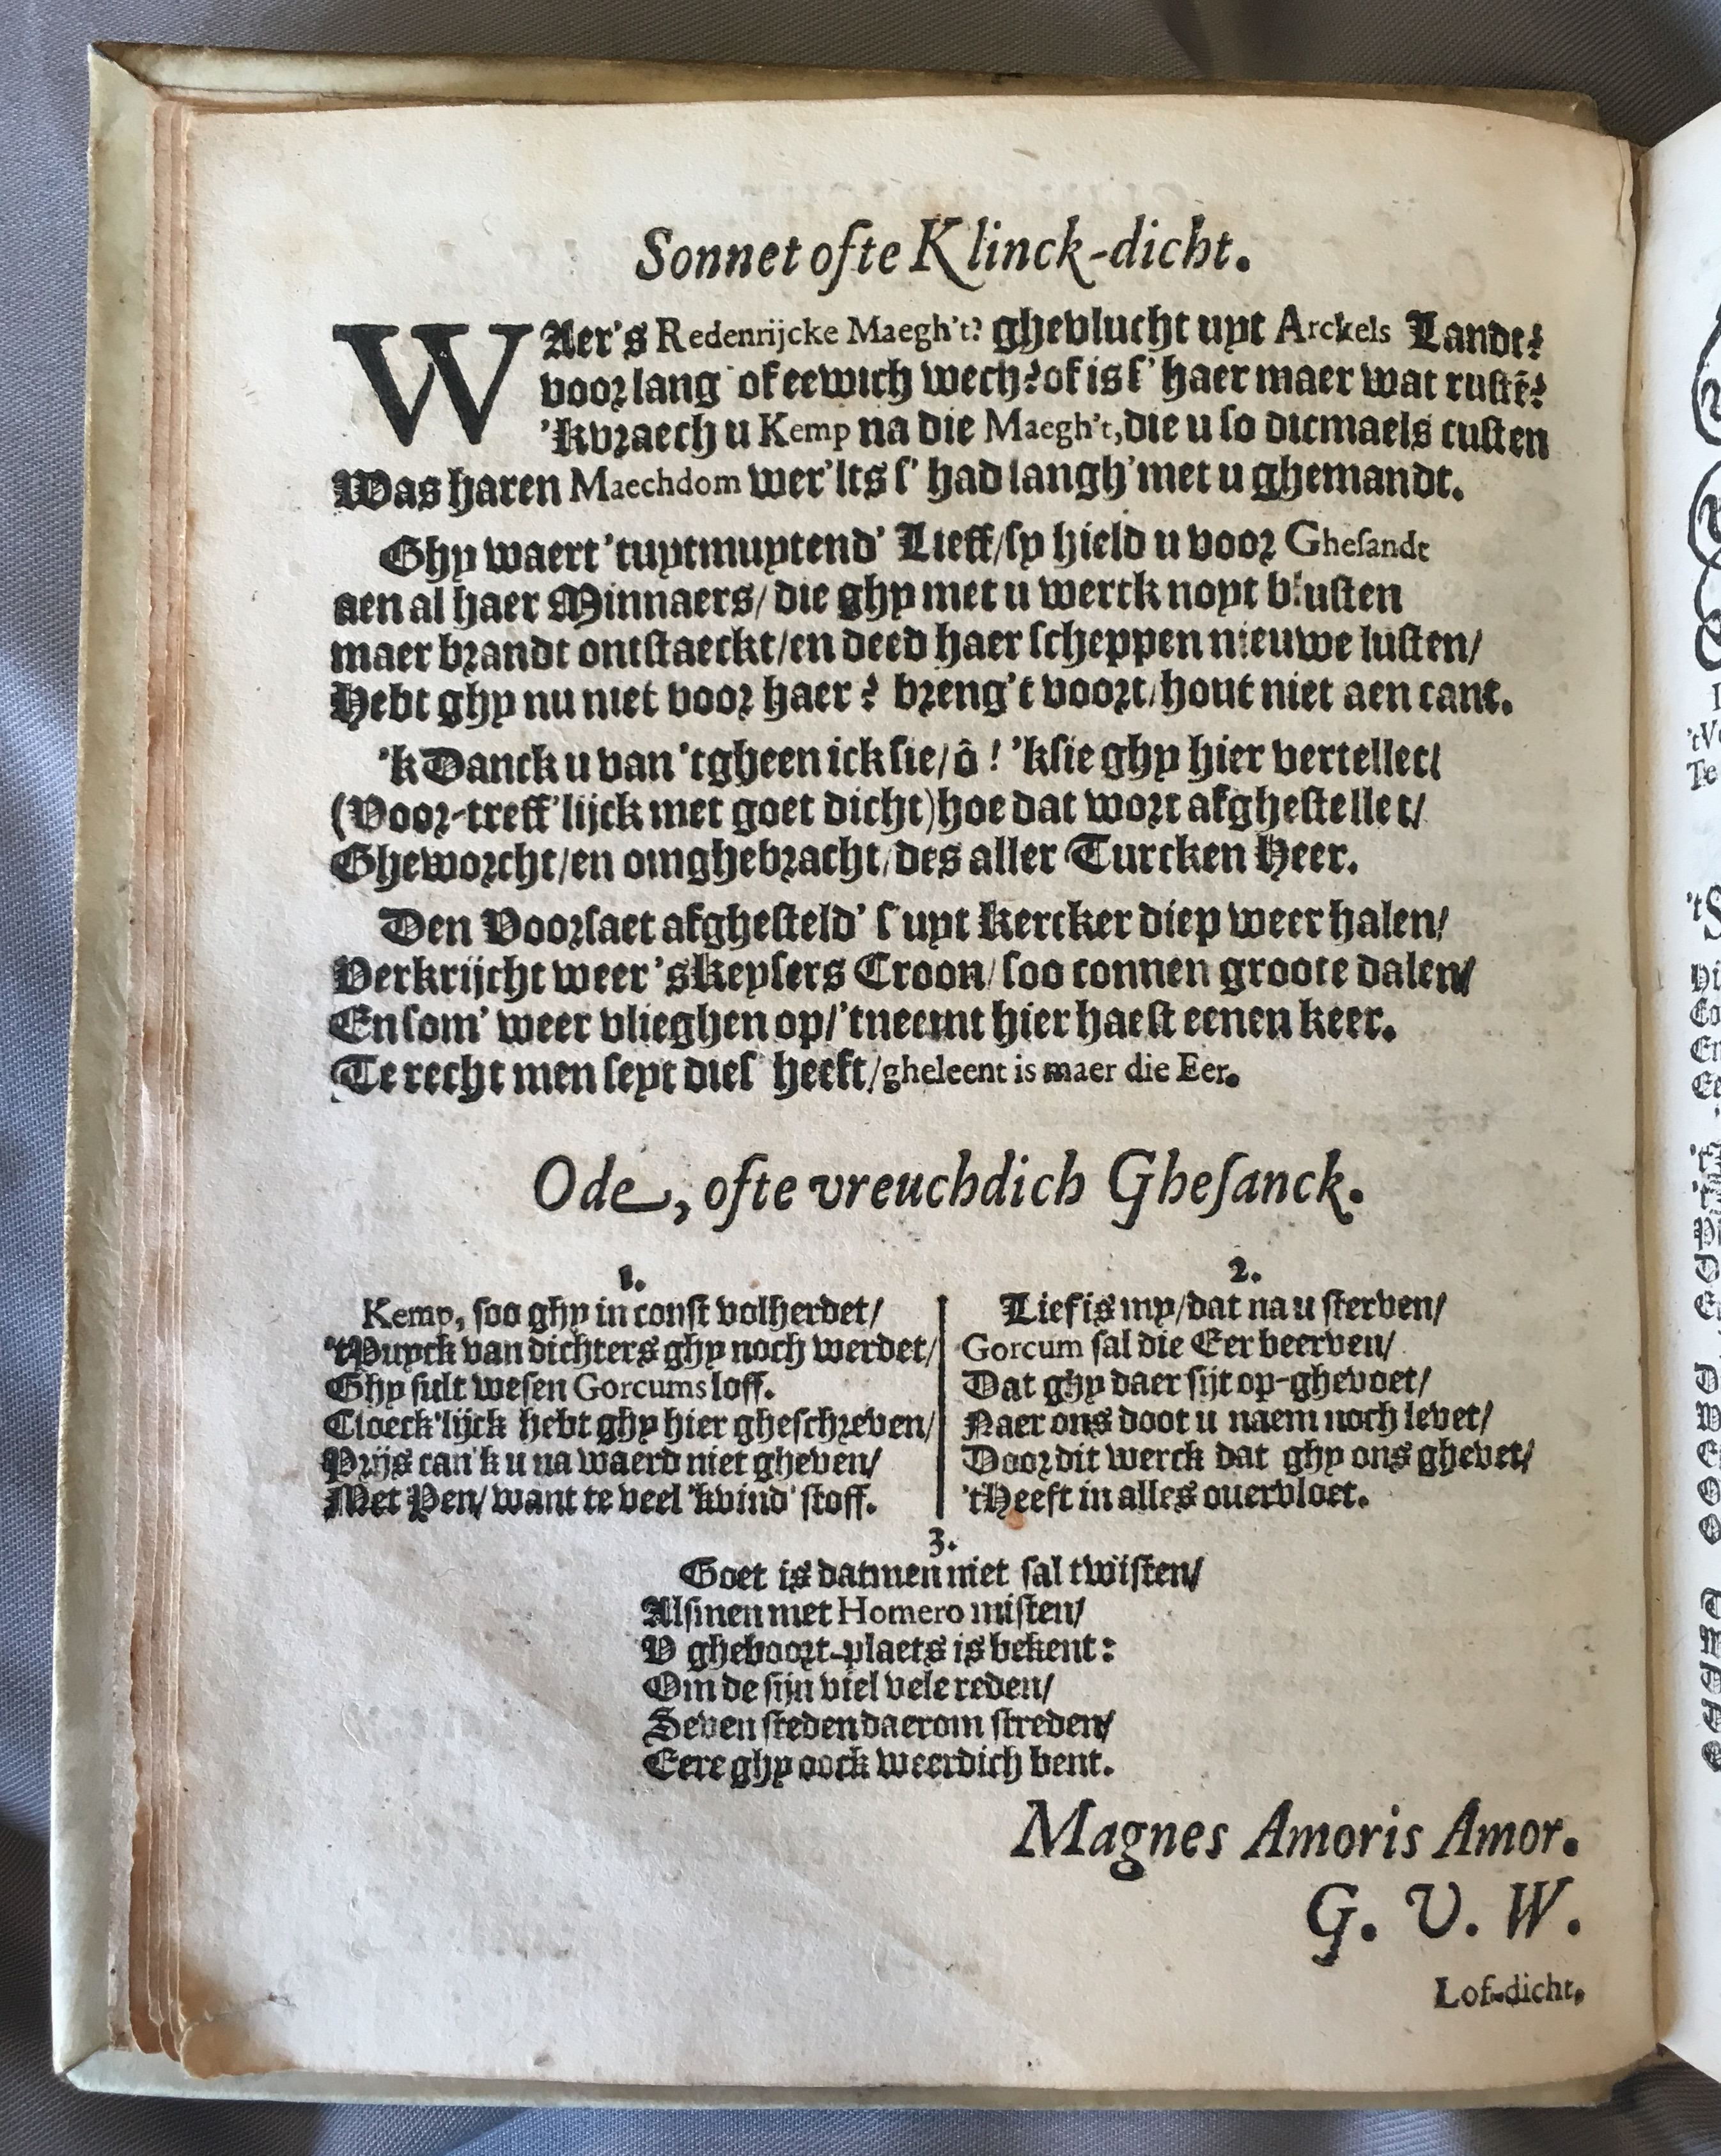 Sonnet ofte Klinck-dicht.
WAer's Redenrijcke Maegh't? ghevlucht uyt Arckels Landt?
voor lang' of eewich wech? of is s' haer maer wat rustē?
'kvraech u Kemp na die Maegh't, die u so dicmaels custen
Was haren Maechdom wer'lts s' had langh' met u ghemandt.
Ghy waert 'tuytmuytend' Lieff/ sy hield u voor Ghesandt
aen al haer Minnaers/ die ghy met u werck noyt blusten
maer brandt ontstaeckt/ en deed haer scheppen nieuwe lusten/
Hebt ghy nu niet voor haer? breng't voort/ hout niet aen cant.
'k Danck u van 'tgheen ick sie/ ô! 'ksie ghy hier vertellet/
(Voor-treff'lijck met goet dicht) hoe dat wort afghestellet/
Gheworcht/ en omghebracht/ des aller Turcken Heer.
Den Voorsaet afghesteld' s'uyt Kercker diep weer halen/
Verkrijcht weer 'sKeysers Croon/ soo connen groote dalen/
En som' weer vlieghen op/ 'tneemt hier haest eenen keer.
Te recht men seyt dies' heeft/ gheleent is maer die Eer.
Ode, ofte vreuchdich Ghesanck.
1.
Kemp, soo ghy in const volherdet/
'tPuyck van dichters ghy noch werdet/
Ghy sult wesen Gorcums loff.
Cloeck'lijck hebt ghy hier gheschreven/
Prijs can'k u na waerd niet gheven/
Met Pen/ want te veel 'kvind' stoff.
2.
Lief is my/ dat na u sterven/
Gorcum sal die Eer beerven/
Dat ghy daer sijt op-ghevoet/
Naer ons doot u naem noch levet/
Door dit werck dat ghy ons ghevet/
'tHeeft in alles overvloet.
3.
Goet is datmen niet sal twisten/
Alsmen met Homero misten/
V gheboort-plaets is bekent:
Om de sijn viel vele reden/
Seven steden daerom streden/
Eere ghy oock weerdich bent.
Magnes Amoris Amor.
G. V. W.
Lof-dicht.